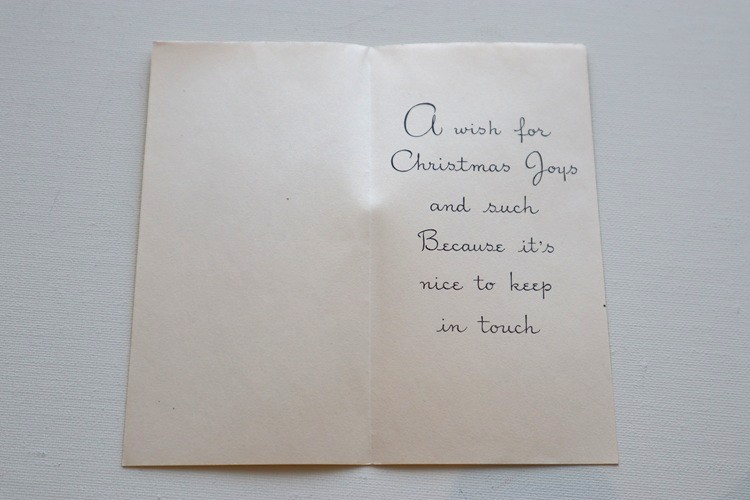 A wish for
Christmas Joys
and such
Because it's
nice to keep
in touch